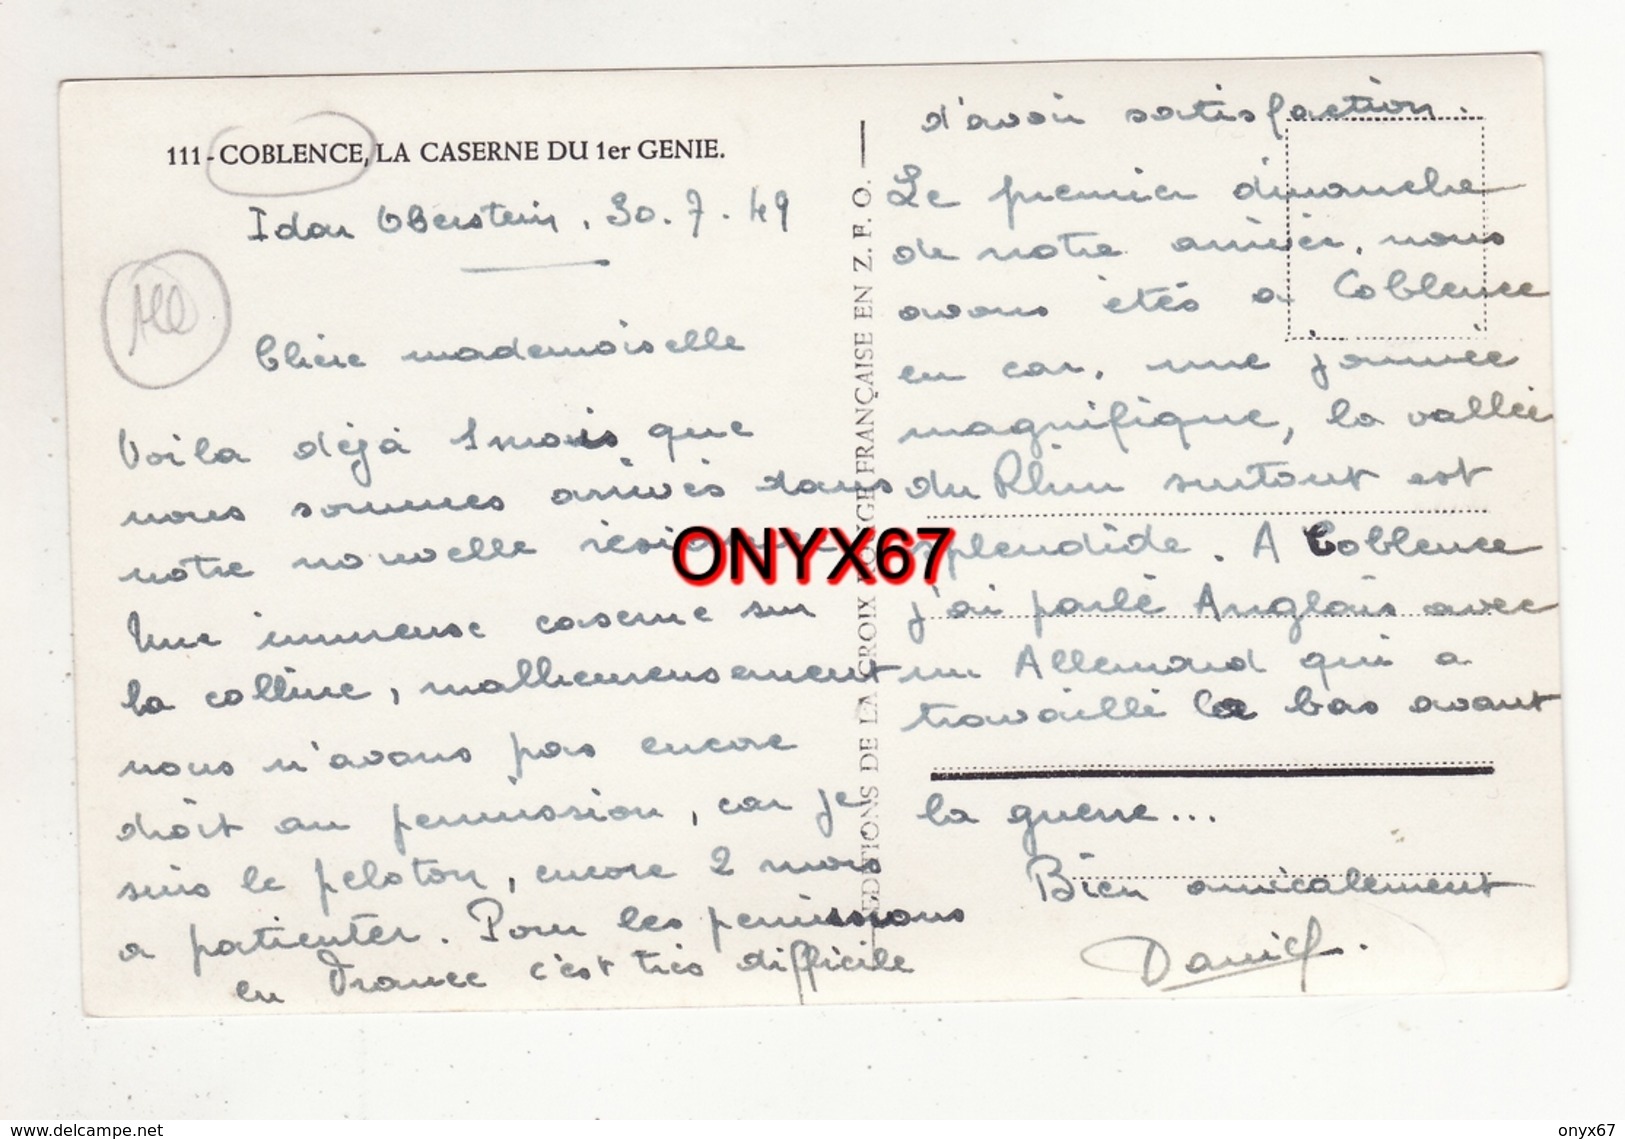 111 - COBLENCE, LA CASERNE DU 1er GENIE.
Idar Oberstein, 30.7.49
All
Chère mademoiselle
Voila déjà 1 mois que
nous sommes arrivés dans
notre nouvelle
Une immense caserne sur
la colline, malheureusement
nous n'avons pas encore
droit au permission, car je
suis le peloton, encore 2 mois
a patienter. Pour les permissions
en France c'est très difficile
EDITIONS DE LA CROIX ROUGE FRANÇAISE EN Z. F. O.
d'avoir satisfaction.
Le premier dimanche
de notre arrivée, nous
avons étés a Coblence
en car, une journée
magnifique, la vallée
du Rhin surtout est
splendide. A Coblence
j'ai parlé Anglais avec
un Allemand qui a
travaillé la bas avant
la guerre...
Bien amicalement
Daniel.
ONYX67
www.delcampe.net
onyx67